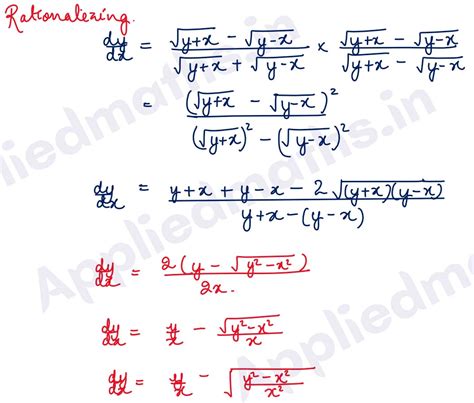 Rationalezing.
dy/dx = (√(y+x) − √(y−x))/(√(y+x) + √(y−x)) × (√(y+x) − √(y−x))/(√(y+x) − √(y−x))
= (√(y+x) − √(y−x))²/((√(y+x))² − (√(y−x))²)
dy/dx = (y+x + y−x − 2√((y+x)(y−x)))/(y+x−(y−x))
dy/dx = 2(y − √(y²−x²))/2x.
dy/dx = y/x − √(y²−x²)/x
dy/dx = y/x − √((y²−x²)/x²)
Appliedmaths.in
Appliedmaths.in